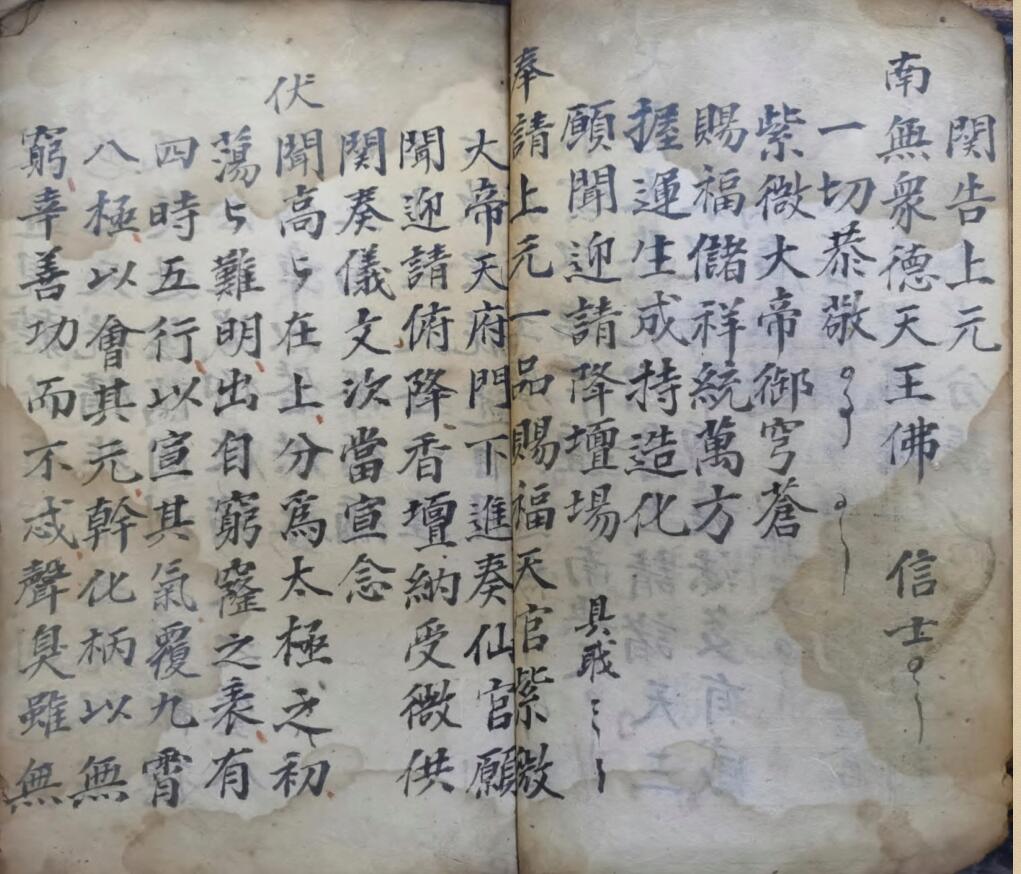 関告上元
南無衆德天王佛 信士
一切恭敬
紫微大帝御穹蒼
賜福儲祥統萬方
握運生成持造化
願聞迎請降壇場 具戝
奉請上元一品賜福天官紫微
大帝天府門下進奏仙官願
聞迎請俯降香壇納受微供
関奏儀文次當宣念
伏聞高々在上分爲太極之初
蕩々難明出自窮窿之表有
四時五行以宣其氣覆九霄
八極以會其元幹化柄以無
窮幸善功而不忒聲臭雖無